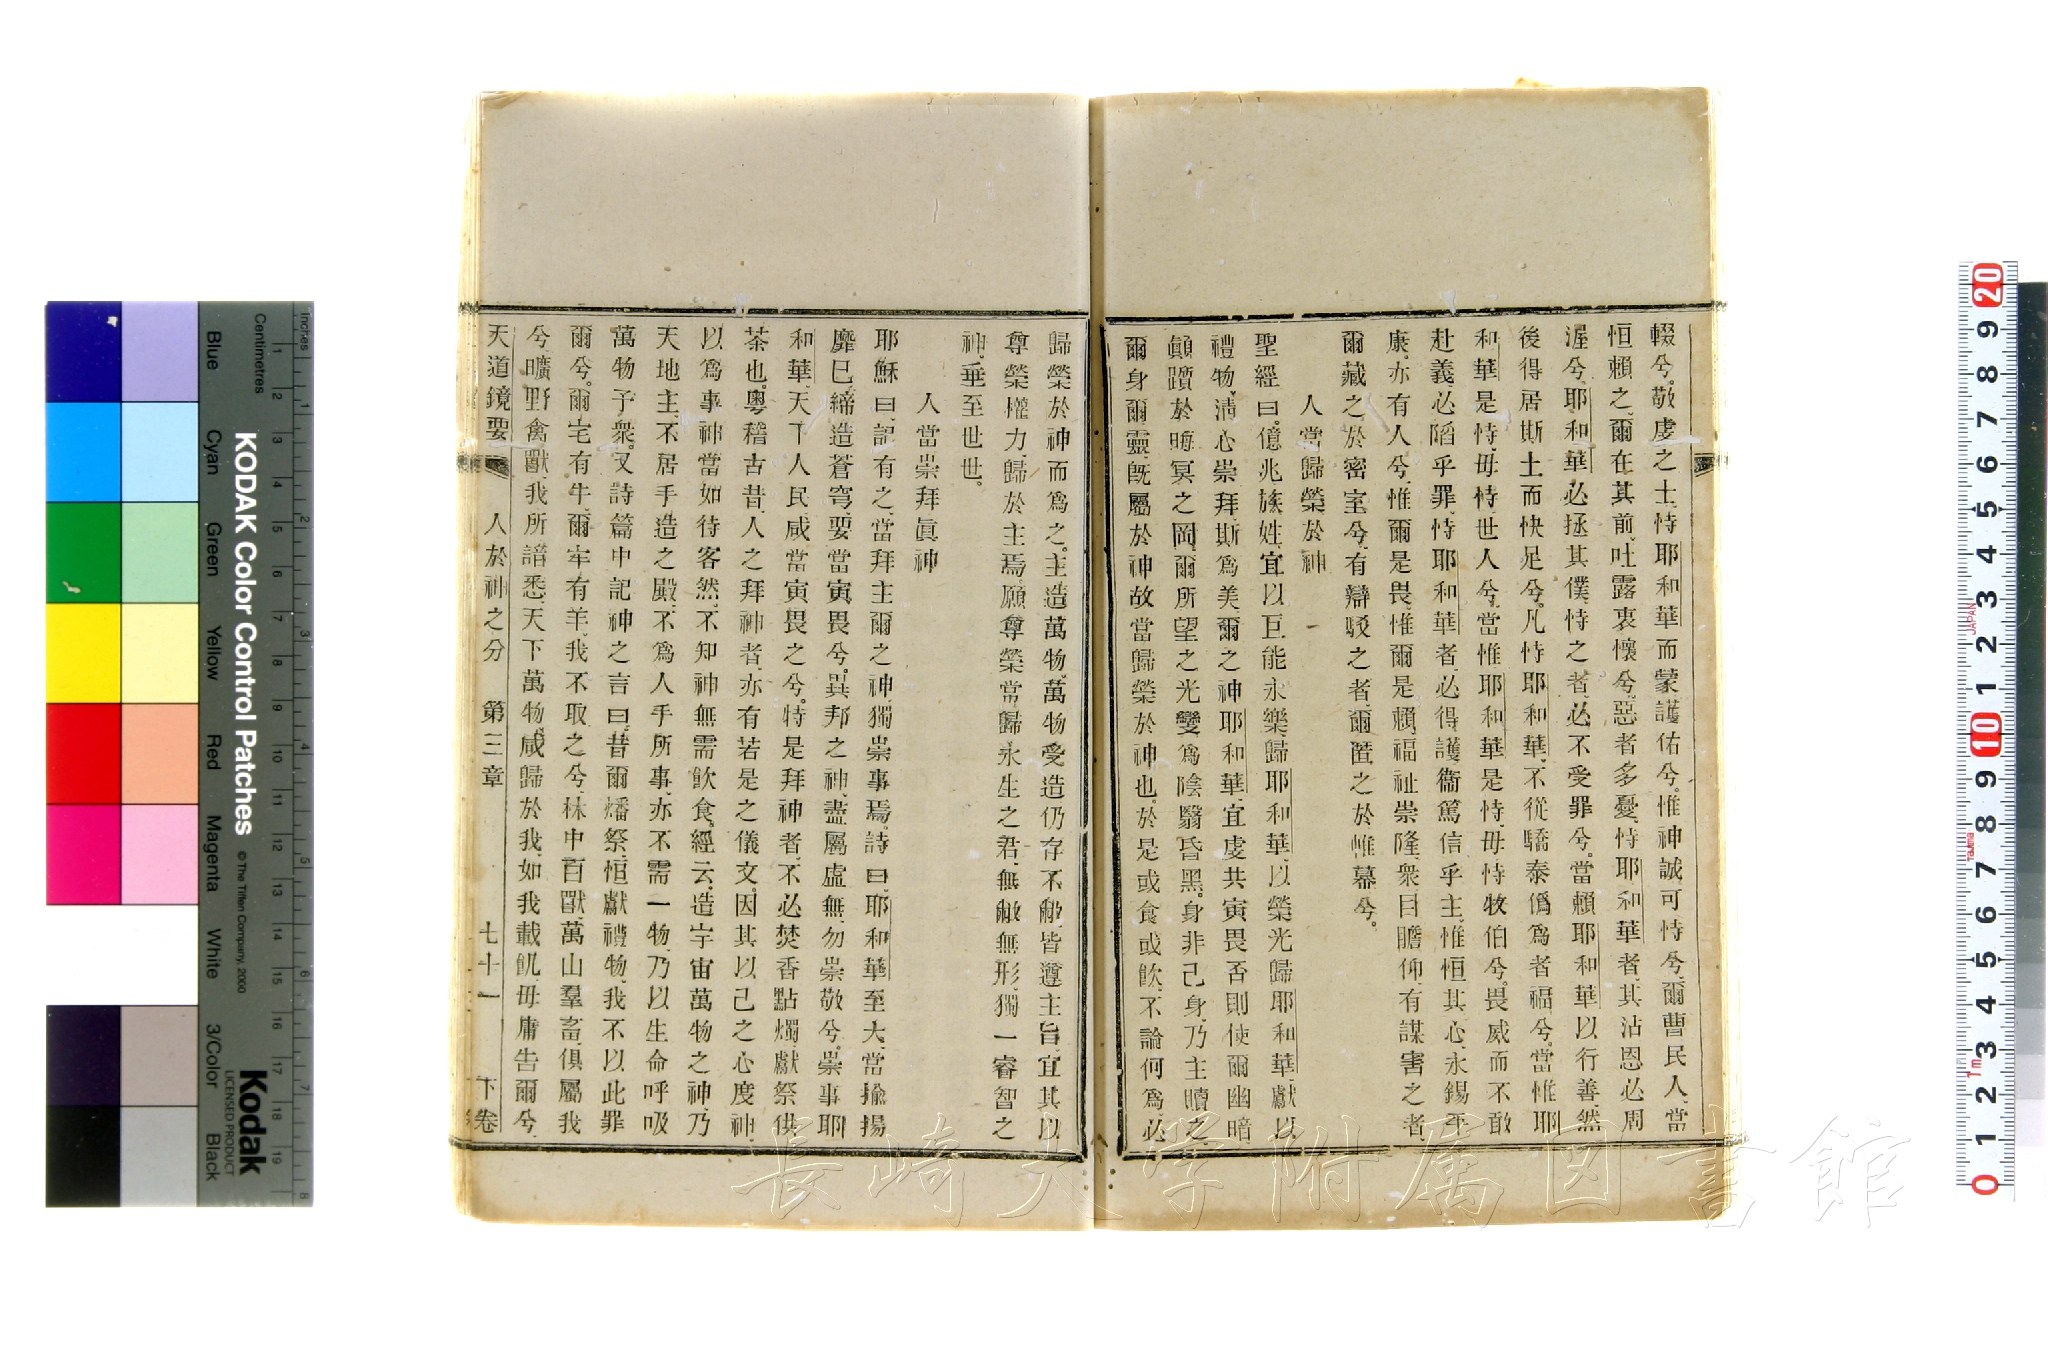 輟兮。敬虔之士、恃耶和華而蒙護佑兮。惟神誠可恃兮、爾曹民人、當
恒賴之、爾在其前、吐露衷懷兮。惡者多憂、恃耶和華者、其沾恩必周
渥兮。耶和華必拯其僕、恃之者、必不受罪兮。當賴耶和華以行善、然
後得居斯土而快足兮。凡恃耶和華、不從驕泰僞爲者福兮。當惟耶
和華是恃、毋恃世人兮、當惟耶和華是恃、毋恃牧伯兮。畏威而不敢
赴義、必陷乎罪、恃耶和華者、必得護衞、篤信乎主、惟恒其心、永錫平
康、亦有人兮、惟爾是畏、惟爾是賴、福祉崇隆、衆目瞻仰、有謀害之者、
爾藏之於密室兮、有辯駁之者、爾匿之於帷幕兮。
人當歸榮於神
聖經曰、億兆族姓、宜以巨能永樂、歸耶和華、以榮光歸耶和華、獻以
禮物、淸心崇拜、斯爲美、爾之神耶和華、宜虔共寅畏、否則使爾幽暗
顚躓於晦冥之岡、爾所望之光、變爲陰翳昏黑。身非己身、乃主贖之、
爾身爾靈、旣屬於神、故當歸榮於神也、於是或食或飮、不論何爲、必
歸榮於神而爲之。主造萬物、萬物受造、仍存不敝、皆遵主旨、宜其以
尊榮權力、歸於主焉、願尊榮常歸永生之君、無敝無形、獨一睿智之
神、垂至世世。
人當崇拜眞神
耶穌曰、記有之、當拜主爾之神、獨崇事焉、詩曰、耶和華至大、當揄揚
靡已、締造蒼穹、要當寅畏兮。異邦之神、盡屬虛無、勿崇敬兮。崇事耶
和華、天下人民、咸當寅畏之兮。特是拜神者、不必焚香點燭、獻祭供
茶也。粵稽古昔、人之拜神者、亦有若是之儀文、因其以己之心度神、
以爲事神當如待客然、不知神無需飮食、經云、造宇宙萬物之神、乃
天地主、不居手造之殿、不爲人手所事、亦不需一物、乃以生命呼吸
萬物予衆。又詩篇中記神之言曰、昔爾燔祭、恒獻禮物、我不以此罪
爾兮。爾宅有牛、爾牢有羊、我不取之兮、林中百獸、萬山羣畜、俱屬我
兮、曠野禽獸、我所諳悉、天下萬物、咸歸於我、如我載飢、毋庸告爾兮、
天道鏡要 人於神之分 第三章 七十一 下卷
KODAK Color Control Patches
© The Tiffen Company, 2000
Kodak
LICENSED PRODUCT
Inches
Centimetres
Blue
Cyan
Green
Yellow
Red
Magenta
White
3/Color
Black
JAPAN
長崎大学附属図書館